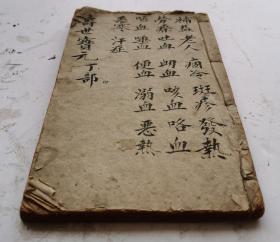 補益 老人 痼冷 斑疹 發熱
勞瘵 吐血 衄血 咳血 咯血
咯血 嘔血 便血 溺血 惡熱
惡寒 汗症
壽世寳元丁部